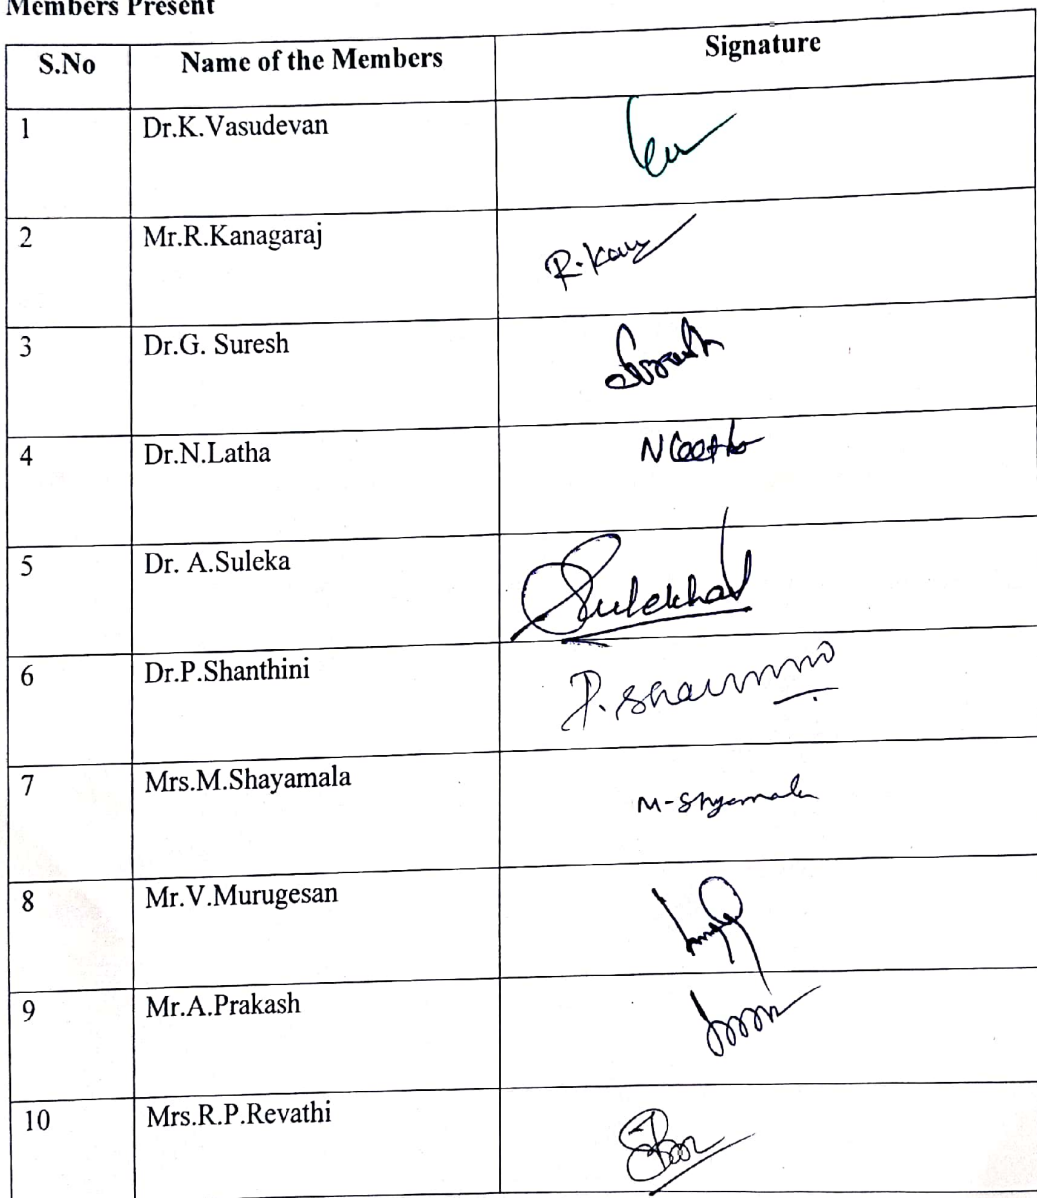 Members Present
S.No Name of the Members Signature
1 Dr.K.Vasudevan
2 Mr.R.Kanagaraj R.Kan
3 Dr.G. Suresh Suresh
4 Dr.N.Latha N Latha
5 Dr. A.Suleka Sulekha
6 Dr.P.Shanthini P.
7 Mrs.M.Shayamala M-Shyamala
8 Mr.V.Murugesan
9 Mr.A.Prakash
10 Mrs.R.P.Revathi